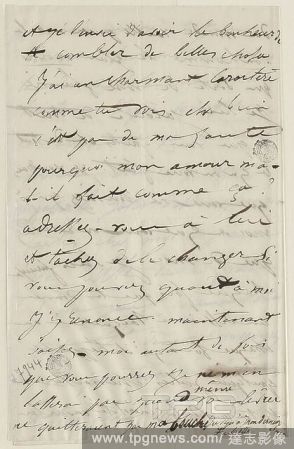 et je t'envie d'avoir le bonheur de
combler de belles choses
J'ai un charmant caractère
comme tu vois, eh bien
c'est pas de ma faute
pourquoi mon amour m'a
t-il fait comme ça ?
adressez-vous à lui
et tâchez de le changer si
vous pouvez quant à moi
J'y renonce maintenant
moi autant de fois
que vous pourrez je ne m'en
lasserai pas quand même
ne quitteraient pas ma bouche
www.tpgnews.com/ 達志影像